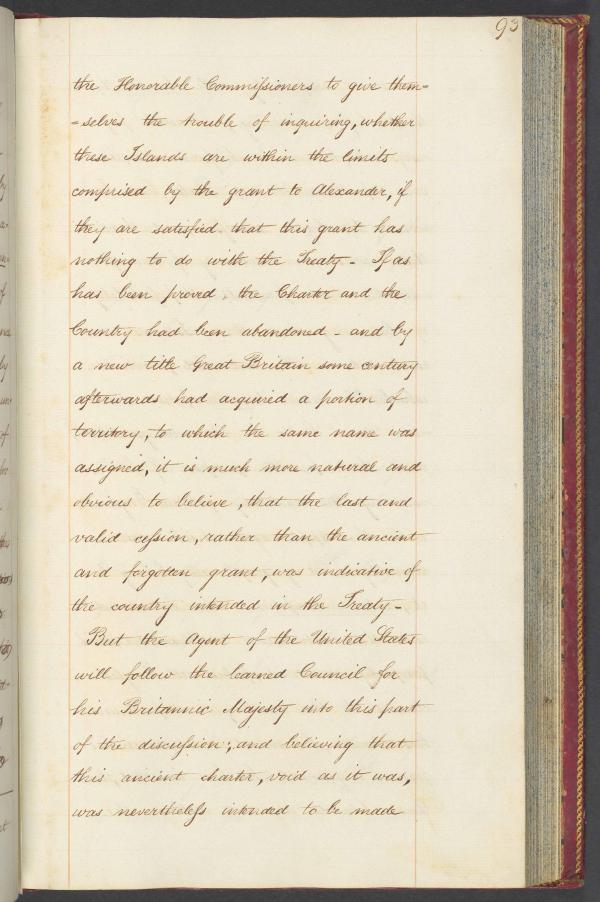 93
the Honorable Commiſsioners to give them=
=selves the trouble of inquiring, whether
these Islands are within the limits
comprised by the grant to Alexander, if
they are satisfied that this grant has
nothing to do with the Treaty - If as
has been proved, the Charter and the
Country had been abandoned - and by
a new title Great Britain some century
afterwards had acquired a portion of
territory, to which the same name was
assigned, it is much more natural and
obvious to believe, that the last and
valid ceſsion, rather than the ancient
and forgotten grant, was indicative of
the country intended in the Treaty -
But the Agent of the United States
will follow the learned Council for
his Britannic Majesty into this part
of the discuſsion; and believing that
this ancient charter, void as it was,
was nevertheleſs intended to be made